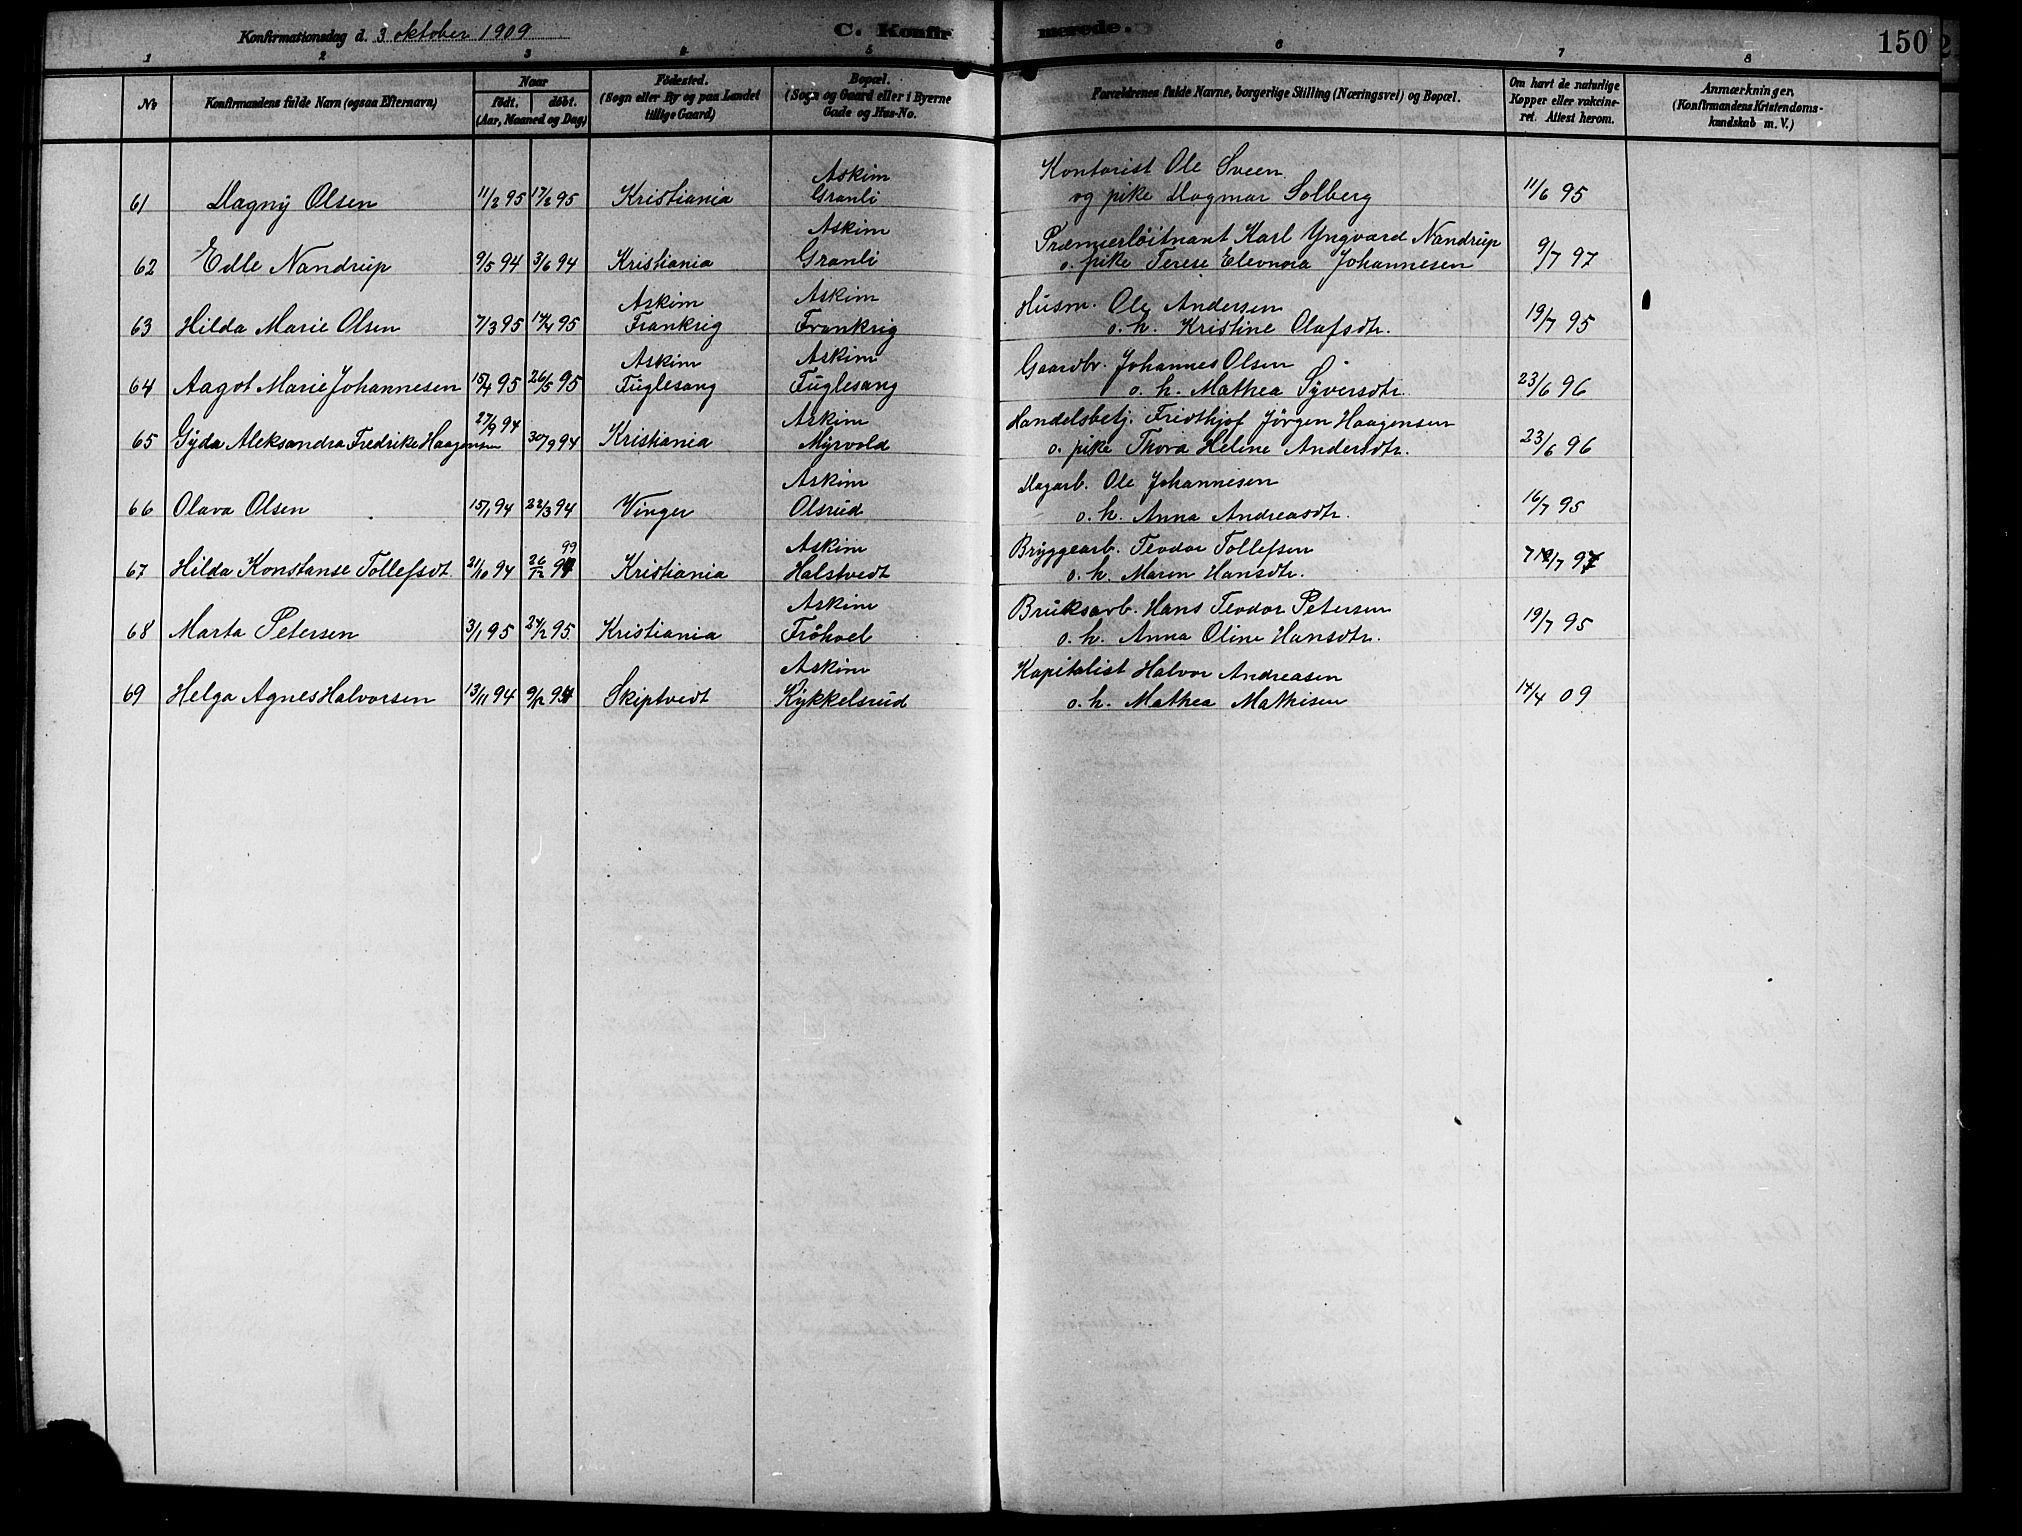 Konfirmationsdag d. 3 oktober 1909
C. Konfirmerede.
150
1 2 3 4 5 6 7 8
No
Konfirmandens fulde Navn (ogsaa Efternavn)
Naar
født. døbt.
(Aar, Maaned og Dag)
Fødested.
(Sogn eller By og paa Landet
tillige Gaard)
Bopæl.
(Sogn og Gaard eller i Byerne
Gade og Hus-No.
Forældrenes fulde Navne, borgerlige Stilling (Næringsvei) og Bopæl.
Om havt de naturlige
Kopper eller vakcine-
ret. Attest herom.
Anmærkninger.
(Konfirmandens Kristendoms-
kundskab m. V.)
Askim Kontorist Ole Sveen
61 Dagny Olsen 11/2 95 17/2 95 Kristiania Granli og pike Dagmar Solberg 11/6 95
Askim Præmierløitnant Karl Yngvard Nandrup
62 Edle Nandrup 9/5 94 3/6 94 Kristiania Granli o. pike Terese Eleonora Johannesen 9/7 97
Askim Askim Husm. Ole Andersen
63 Hilda Marie Olsen 7/3 95 14/4 95 Frankrig Frankrig o. h. Kristine Olafsdtr. 19/7 95
Askim Askim Gaardbr. Johannes Olsen
64 Aagot Marie Johannesen 15/4 95 26/5 95 Fuglesang Fuglesang o. h. Mathea Syversdtr. 23/6 96
27/9 94 Askim Handelsbetj. Fridthjof Jørgen Haagensen
65 Gyda Aleksandra Fredrike Haagensen 30/9 94 Kristiania Myrvold o. pike Thora Helene Andersdtr. 23/6 96
Askim Dagarb. Ole Johannesen
66 Olava Olsen 15/1 94 22/3 94 Vinger Olsrud o. h. Anna Andreasdtr. 16/7 95
99 Askim Bryggearb. Teodor Tollefsen
67 Hilda Konstanse Tollefsdt. 21/10 94 26/12 94 Kristiania Halstvedt o. h. Maren Hansdtr.
Askim Bruksarb. Hans Teodor Petersen
68 Marta Petersen 3/1 95 24/2 95 Kristiania Frøhoel o. h. Anna Oline Hansdtr. 19/7 95
Askim Kapitalist Halvor Andreasen
69 Helga Agnes Halvorsen 13/11 94 9/12 94 Skiptvedt Kykkelsrud o. h. Mathea Mathisen 14/4 09